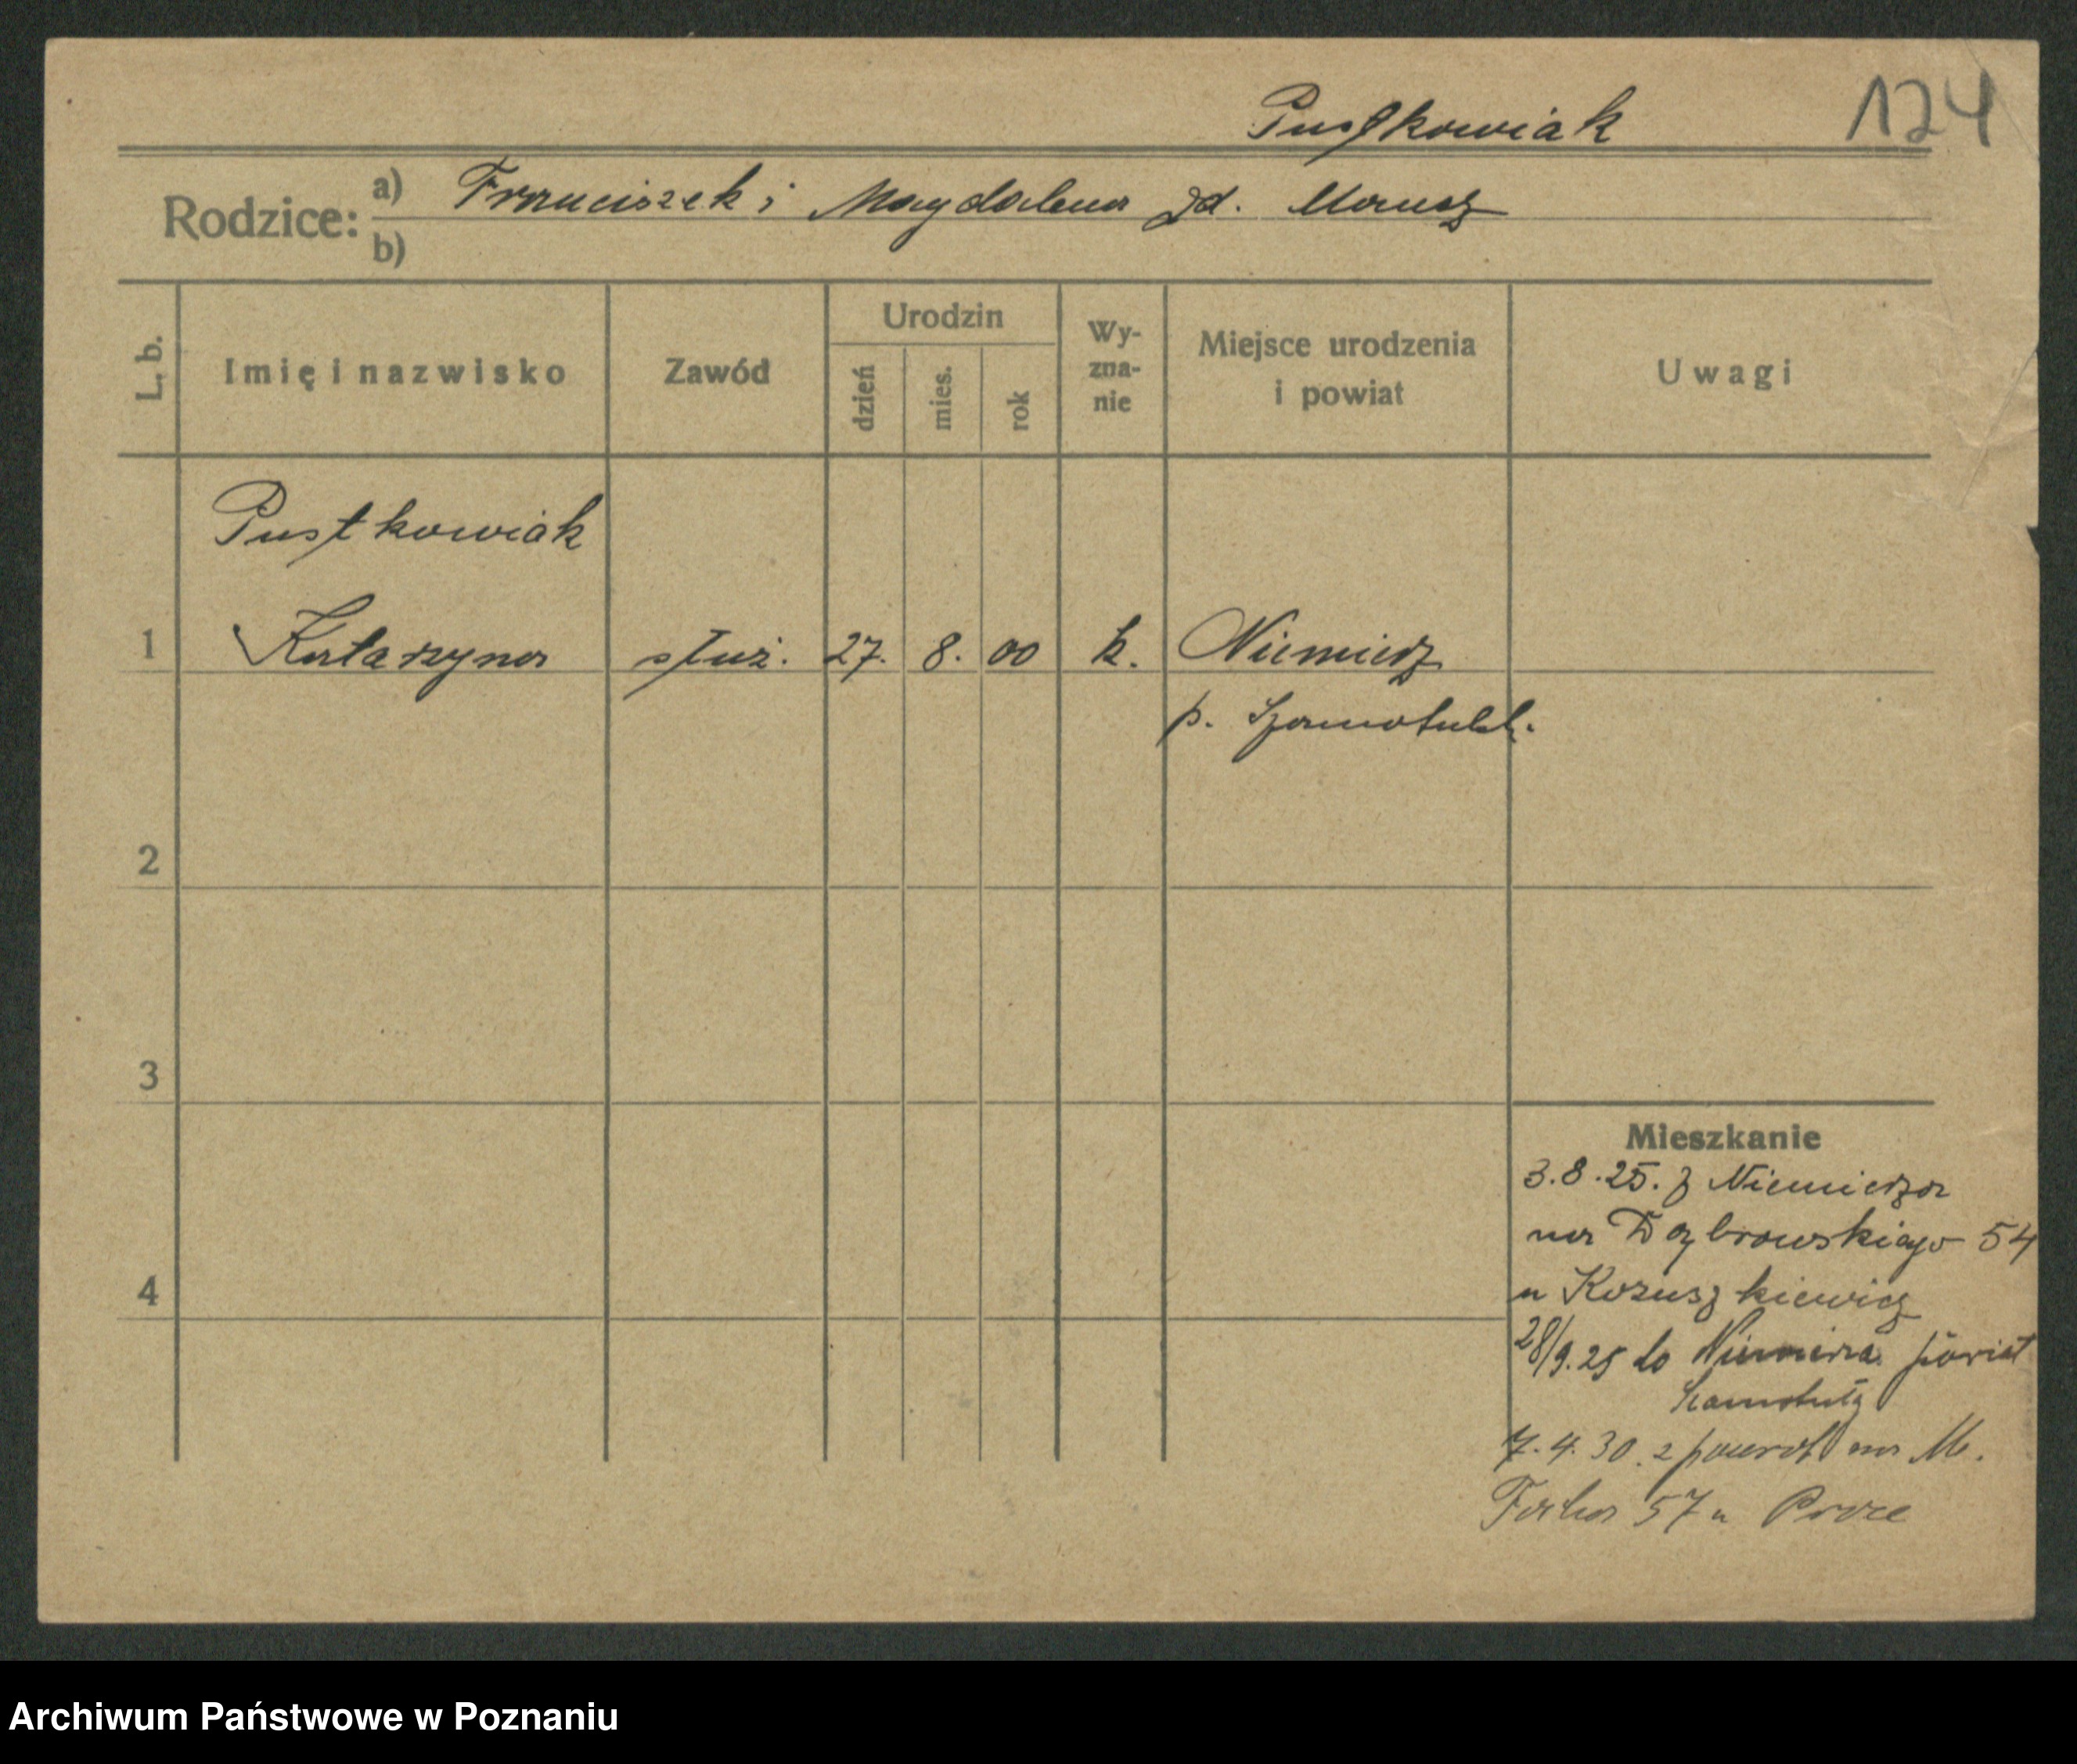 Pustkowiak 124
Rodzice: a) Franciszek i Magdalena zd. Marusz
b)
L. b. Imię i nazwisko Zawód Urodzin dzień mies. rok Wy-zna-nie Miejsce urodzenia i powiat Uwagi
Pustkowiak
1 Katarzyna służ. 27. 8. 00 k. Niemiecz
p. Szamotulsk.
2
3
4
Mieszkanie
3.8.25. z
na Dąbrowskiego 54
u
28/9.25 do powiat
7.4.30. z powrot na M.
Focha 57 u
Archiwum Państwowe w Poznaniu